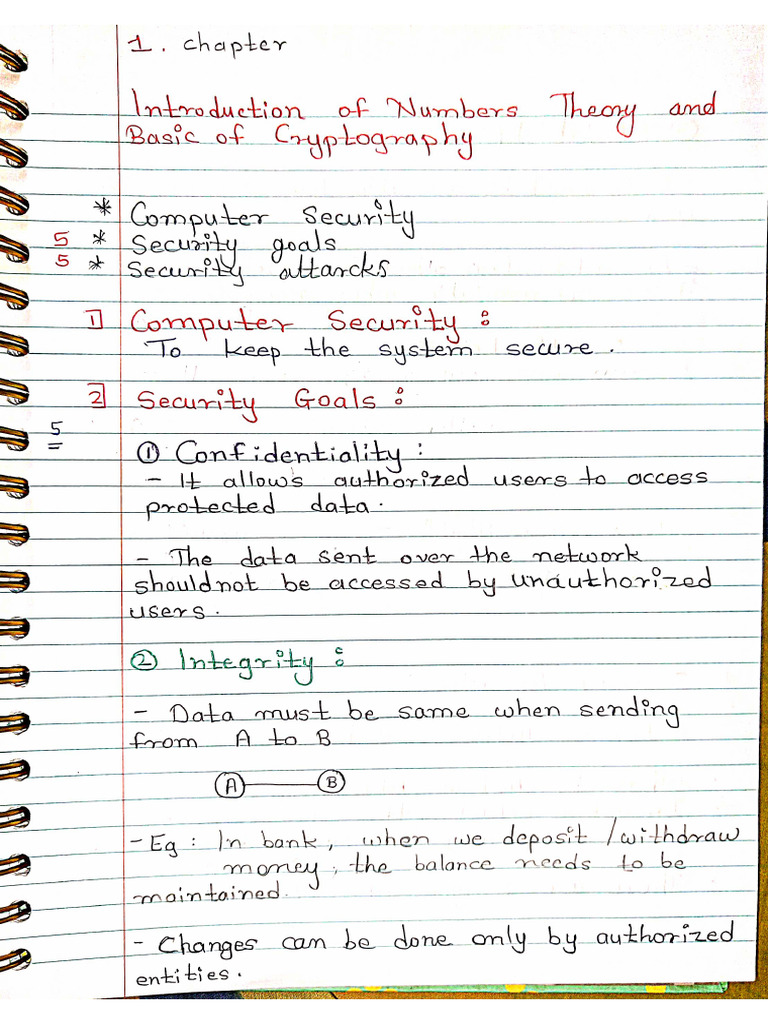 1. chapter
Introduction of Numbers Theory and
Basic of Cryptography
* Computer Security
5 * Security goals
5 * Security attarcks
1] Computer Security :
To keep the system secure.
2] Security Goals :
5
① Confidentiality :
- It allows authorized users to access
protected data.
- The data sent over the network
shouldnot be accessed by unauthorized
users.
② Integrity :
- Data must be same when sending
from A to B
A B
- Eg : In bank, when we deposit /withdraw
money, the balance needs to be
maintained.
- Changes can be done only by authorized
entities.